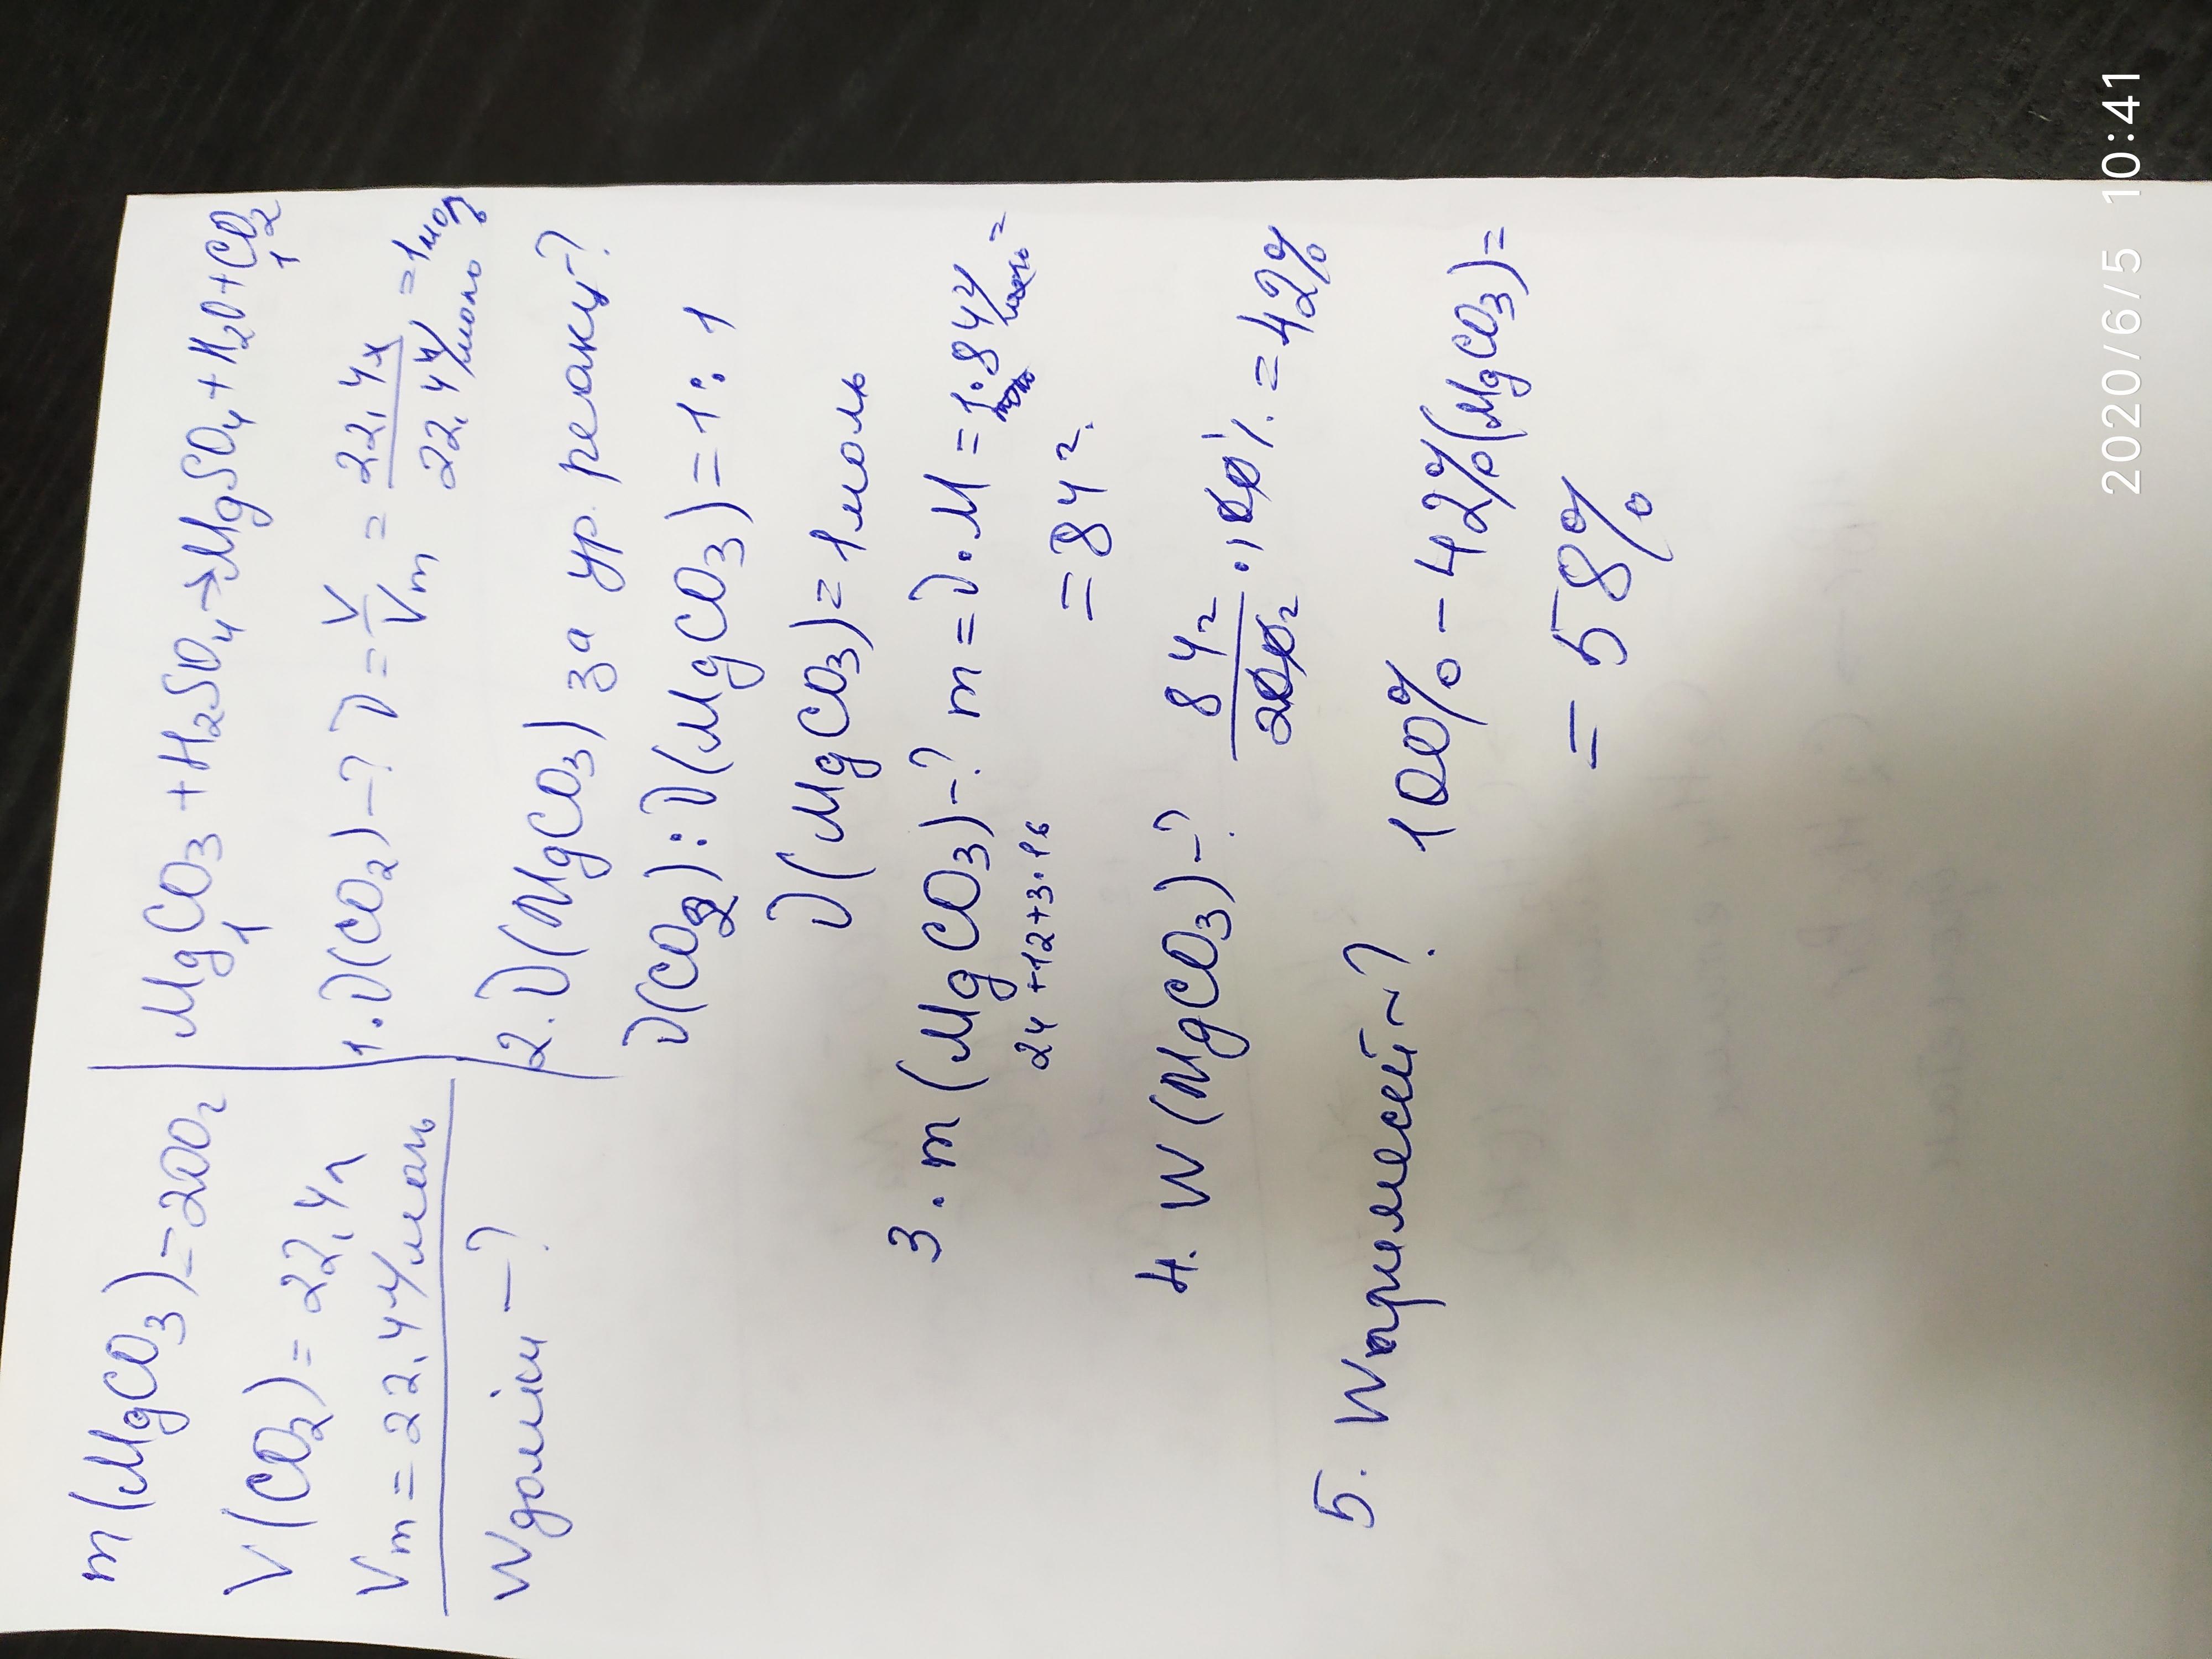 m(MgCO3)=200г
V(CO2)=22,4л
Vm=22,4л/моль
Wдоміш —?
MgCO3+H2SO4→MgSO4+H2O+CO2
1 1
1. ν(CO2)—? ν=V/Vm=22,4л/22,4л/моль=1моль
2. ν(MgCO3) за ур. реакци-?
ν(CO2):ν(MgCO3)=1:1
ν(MgCO3)=1моль
3. m(MgCO3)-? m=ν·M=1моль·84г/моль=
24+12+3·16
=84г.
4. W(MgCO3)-? 84г/200г·100%=42%
5. Wпримесей~? 100%-42%(MgCO3)=
=58%
2020/6/5 10:41